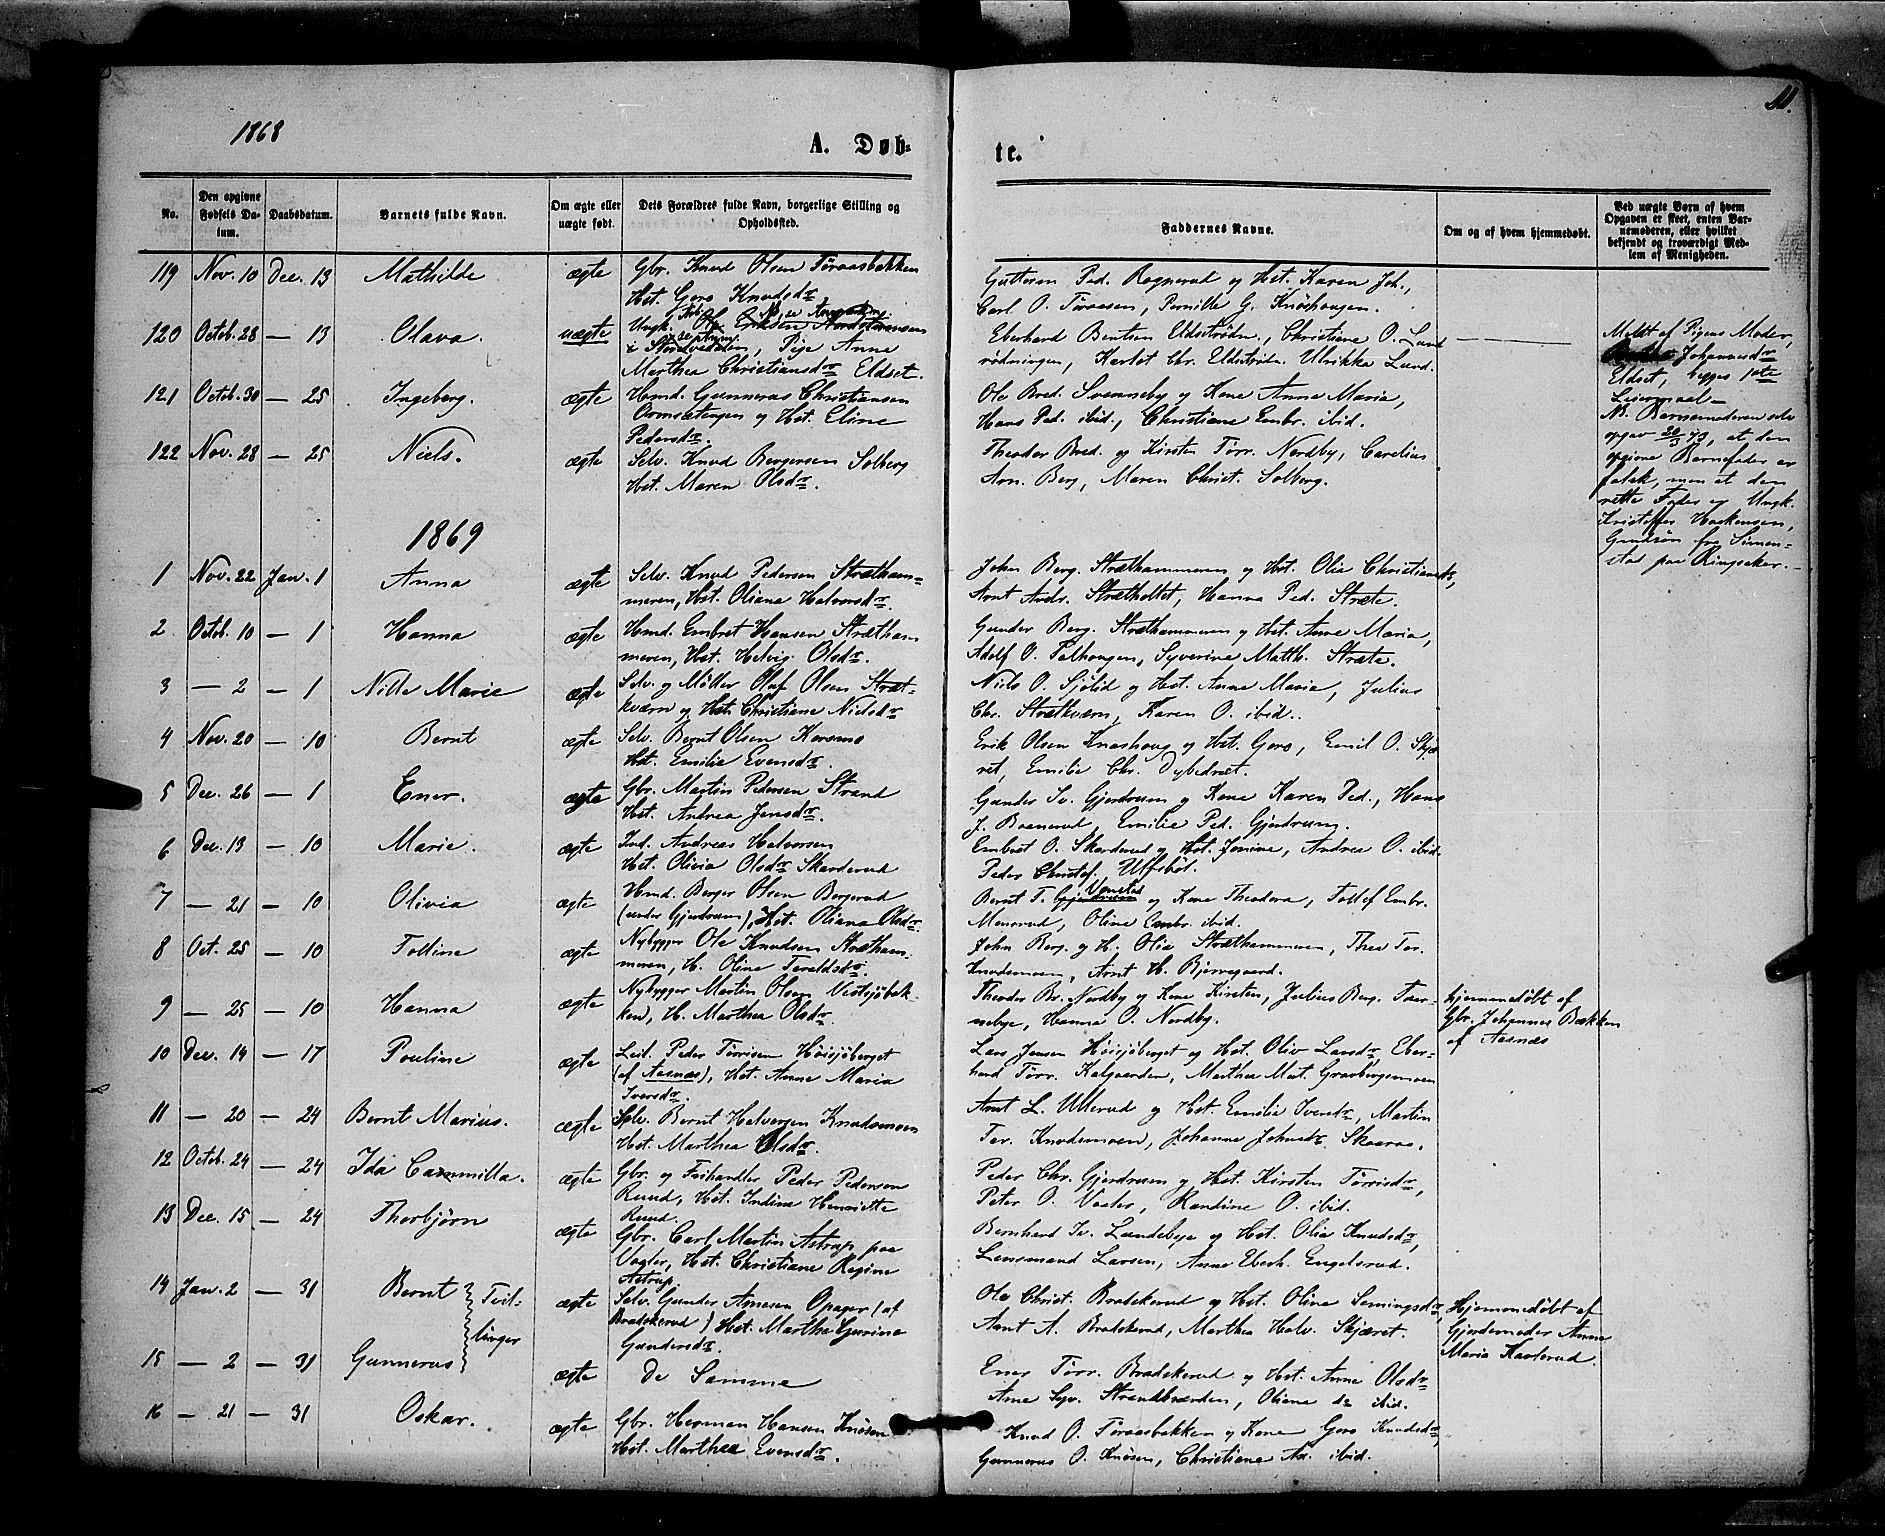 1868
A. Døb-
te.
11.
No.
Den opgivne Fødsels Da-
tum.
Daabsdatum.
Barnets fulde Navn.
Om ægte eller
uægte født.
Dets Forældres fulde Navn, borgerlige Stilling og
Opholdssted.
Faddernes Navne.
Om og af hvem hjemmedøbt.
Ved uægte Børn af hvem
Opgaven er skeet, enten Bar-
nemoderen, eller hvilket
bekjendt og troværdigt Med-
lem af Menigheden.
119 Nov. 10 Dec. 13 Mathilde ægte Gbr. Knud Olsen Tøraasbakken
Hst. Goro Knudsdr.
Guttorm Ped. Rognerud og Hst. Karen Joh.,
Carl O. Tøraasen, Pernille G. Knøshaugen.
120 Octob. 28 — 13 Olava. uægte Ungk. Eriksen
i, Pige Anna
Marthea Christiansdr. Eldset.
Eberhard Bentsen Eldstrøen, Christiane O. Lund
Ulrikka Lund.
Meldt af Pigens Moder,
Johannesdr.
Eldset, begges 1ste
Leiermaal —
NB. Barnemoderen selv
opgav 20/3 73, at den
opgivne Barnefader er
falsk, men at den
rette Fader er Ungk.
Kristoffer Haakensen,
Gaardsøn fra Simen-
stad paa Ringsaker. —
121 Octob. 30 — 25 Ingeborg. ægte Hmd. Gunnerus Christiansen
Ormsætengen og Hst. Eline
Pedersdr.
Ole Bred. Svenneby og Kone Anna Maria,
Hans Ped. ibid., Christiane Embr. ibid.
122 Nov. 28 — 25 Niels. ægte Selv. Knud Bergersen Solberg
Hst. Maren Olsdr.
Theodor Bred. og Kirsten Tørr. Nordby, Carelius
Arn. Berg, Maren Christ. Solberg.
1869
1 Nov. 22 Jan. 1 Anna ægte Selv. Knud Pedersen Strætham-
meren, Hst. Oliana Halvorsdr.
John Berg. Stræthammeren og Hst. Olia Christiansdr.,
Arnt Andr. Stræthellet, Hanna Ped. Stræte.
2 Octob. 10 — 1 Hanna ægte Hmd. Embret Hansen Strætham
meren, Hst. Helvig Olsdr.
Gunder Berg. Stræthammeren og Hst. Anne Maria,
Adolf O. Falhaugen, Syverine Matth. Stræte.
3 — 2 — 1 Nille Marie ægte Selv. og Møller Oluf Olsen Stræt-
kværn og Hst. Christiane Nielsdr
Niels O. Sjølid og Hst. Anne Maria, Julius
Chr. Strætkværn, Karen O. ibid.
4 Nov. 20 — 10 Bernt ægte Selv. Bernt Olsen Korsmo
Hst. Emilie Evensdr.
Erik Olsen Knashaug og Hst. Goro, Emil O. Skjæ
ret, Emilie Chr. Dybedræt.
5 Dec. 26 — 1 Ener. ægte Gbr. Martin Pedersen Strand
Hst. Andrea Jensdr.
Gunder Sv. Gjerdrum og Kone Karen Ped., Hans
J. Bognerud, Emilie Ped. Gjerdrum.
6 Dec. 13 — 10 Marie. ægte Ind. Andreas Halvorsen
Hst. Olivia Olsdr. Skarderud
Embret O. Skarderud og Hst. Jonine, Andrea O. ibid.
Peder Christof. Ulfsbøl.
7 — 21 — 10 Olivia ægte Hmd. Berger Olsen Bergerud
(under Gjerdrum), Hst. Oliana Olsdr.
Bernt T. Gjerdrum og Kone Theodora, Tollef Embr.
Monsrud, Oline Embr. ibid.
8 Oct. 25 — 10 Tolline ægte Nybygger Ole Knudsen Strætham-
meren, H. Oline Taraldsdr.
John Berg. og H. Olia Stræthammeren, Thea Tor.
Knudsmoen, Arnt H. Bjørnegaard.
9 — 25 — 10 Hanna ægte Nybygger Martin Olsen Vestsjøbak-
ken, H. Marthea Olsdr.
Theodor Br. Nordby og Kone Kirsten, Julius Berg. Taar-
nebye, Hanna O. Nordby.
hjemmedøbt af
Gbr. Johannes Bækken
af Aasnæs
10 Dec. 14 — 17 Pouline ægte Leil. Peder Tørrisen Høisjøberget
(af Aasnæs), Hst. Anne Maria
Iversdr.
Lars Jensen Høisjøberget og Hst. Oliv Larsdr. Eber-
hard Tørr. Kalgaarden, Marthea Mat. Gravbergsmoen
11 — 20 — 24 Bernt Marius. ægte Selv. Bernt Halvorsen Knudsmoen
Hst. Marthea Olsdr.
Arnt L. Ullerud og Hst. Emilie Iversdr, Martin
Tor. Knudsmoen, Johanna Johnsdr. Skaaraa.
12 Octob. 24 — 24 Ida Cammilla. ægte Gbr. og Frihandler Peder Pedersen
Ruud, Hst. Indine Henriette
Ruud.
Peder Chr. Gjerdrum og Hst. Kirsten Tørrisdr.,
Peter O. Vaaler, Randine O. ibid.
13 Dec. 15 — 24 Thorbjørn ægte Gbr. Carl Martin Astrup paa
Vogler, Hst. Christiane Regine
Astrup.
Bernhard Iv. Lundebye og Hst. Olia Knudsdr.,
Lensmand Larsen, Anne Eberh. Engelsrud.
14 Jan. 2 — 31 Bernt } Tvil-
linger ægte Selv. Gunder Arnesen Opager (af
Bradskerud) Hst. Martha Gurine
Gundersdr.
Ole Christ. Bradskerud og Hst. Oline Semingsdr,
Arnt A. Bradskerud, Marthea Halv. Skjæret.
Hjemmedøbt af
Gjordemoder Anne
Maria Kaaterud.
15 — 2 — 31 Gunnerus ægte De Samme
Ener Tørr. Bradskerud og Hst. Anne Olsdr.
Arne Syv. Strandkværnen, Oliana do ibid.
16 — 21 — 31 Oskar. ægte Gbr. Herman Hansen Knøsen
Hst. Marthea Evensdr.
Knud O. Tøraasbakken og Kone Goro Knudsdr,
Gunnerus O. Knøsen, Christiane As. ibid.